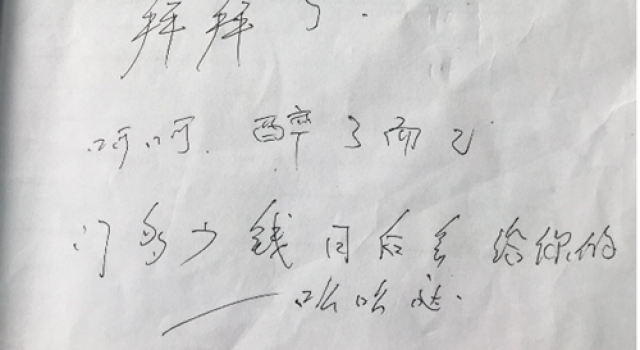 拜拜了.
呵呵.醉了而已
门多少钱日后会给你的
——么么哒.